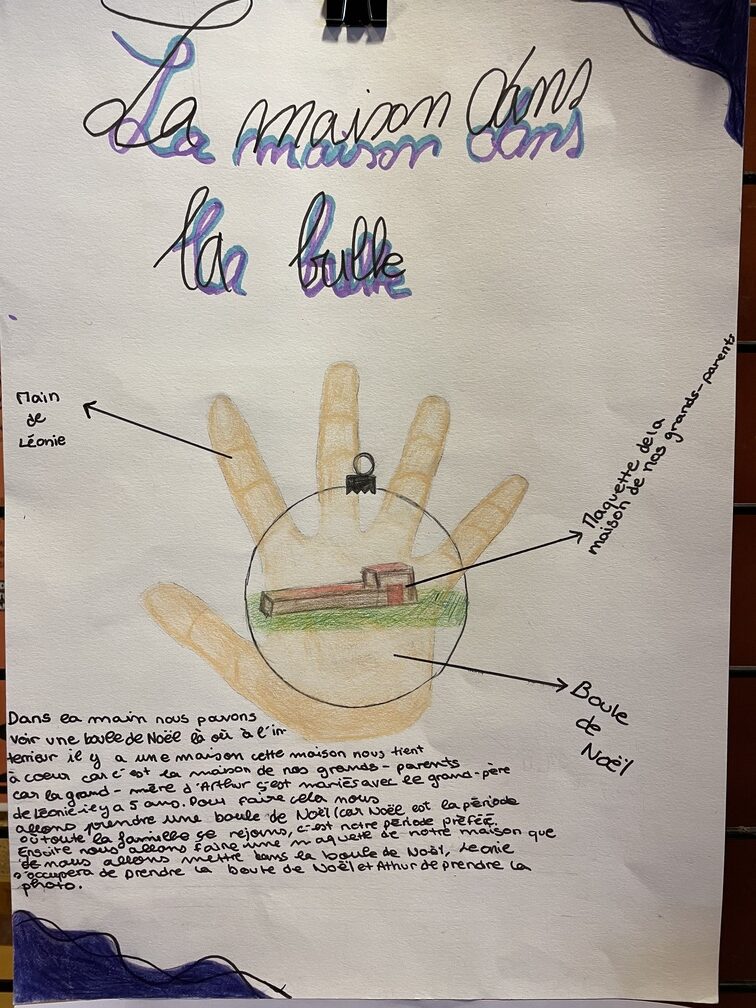 La maison dans
la bulle
Main
de
Léonie
Maquette de la
maison de nos grands-parents
Boule
de
Noël
Dans la main nous pouvons
voir une boule de Noël là où à l'in
terrieur il y a une maison cette maison nous tient
à coeur car c'est la maison de nos grands-parents
car la grand-mère d'Arthur s'est mariés avec le grand-père
de Léonie il y a 5 ans. Pour faire cela nous
allons prendre une boule de Noël (car Noël est la période
où toute la famille se rejoins, c'est notre période préféé.
Ensuite nous allons faire une maquette de notre maison que
nous allons mettre dans la boule de Noël, Léonie
s'occupera de prendre la boule de Noël et Athur de prendre la
photo.